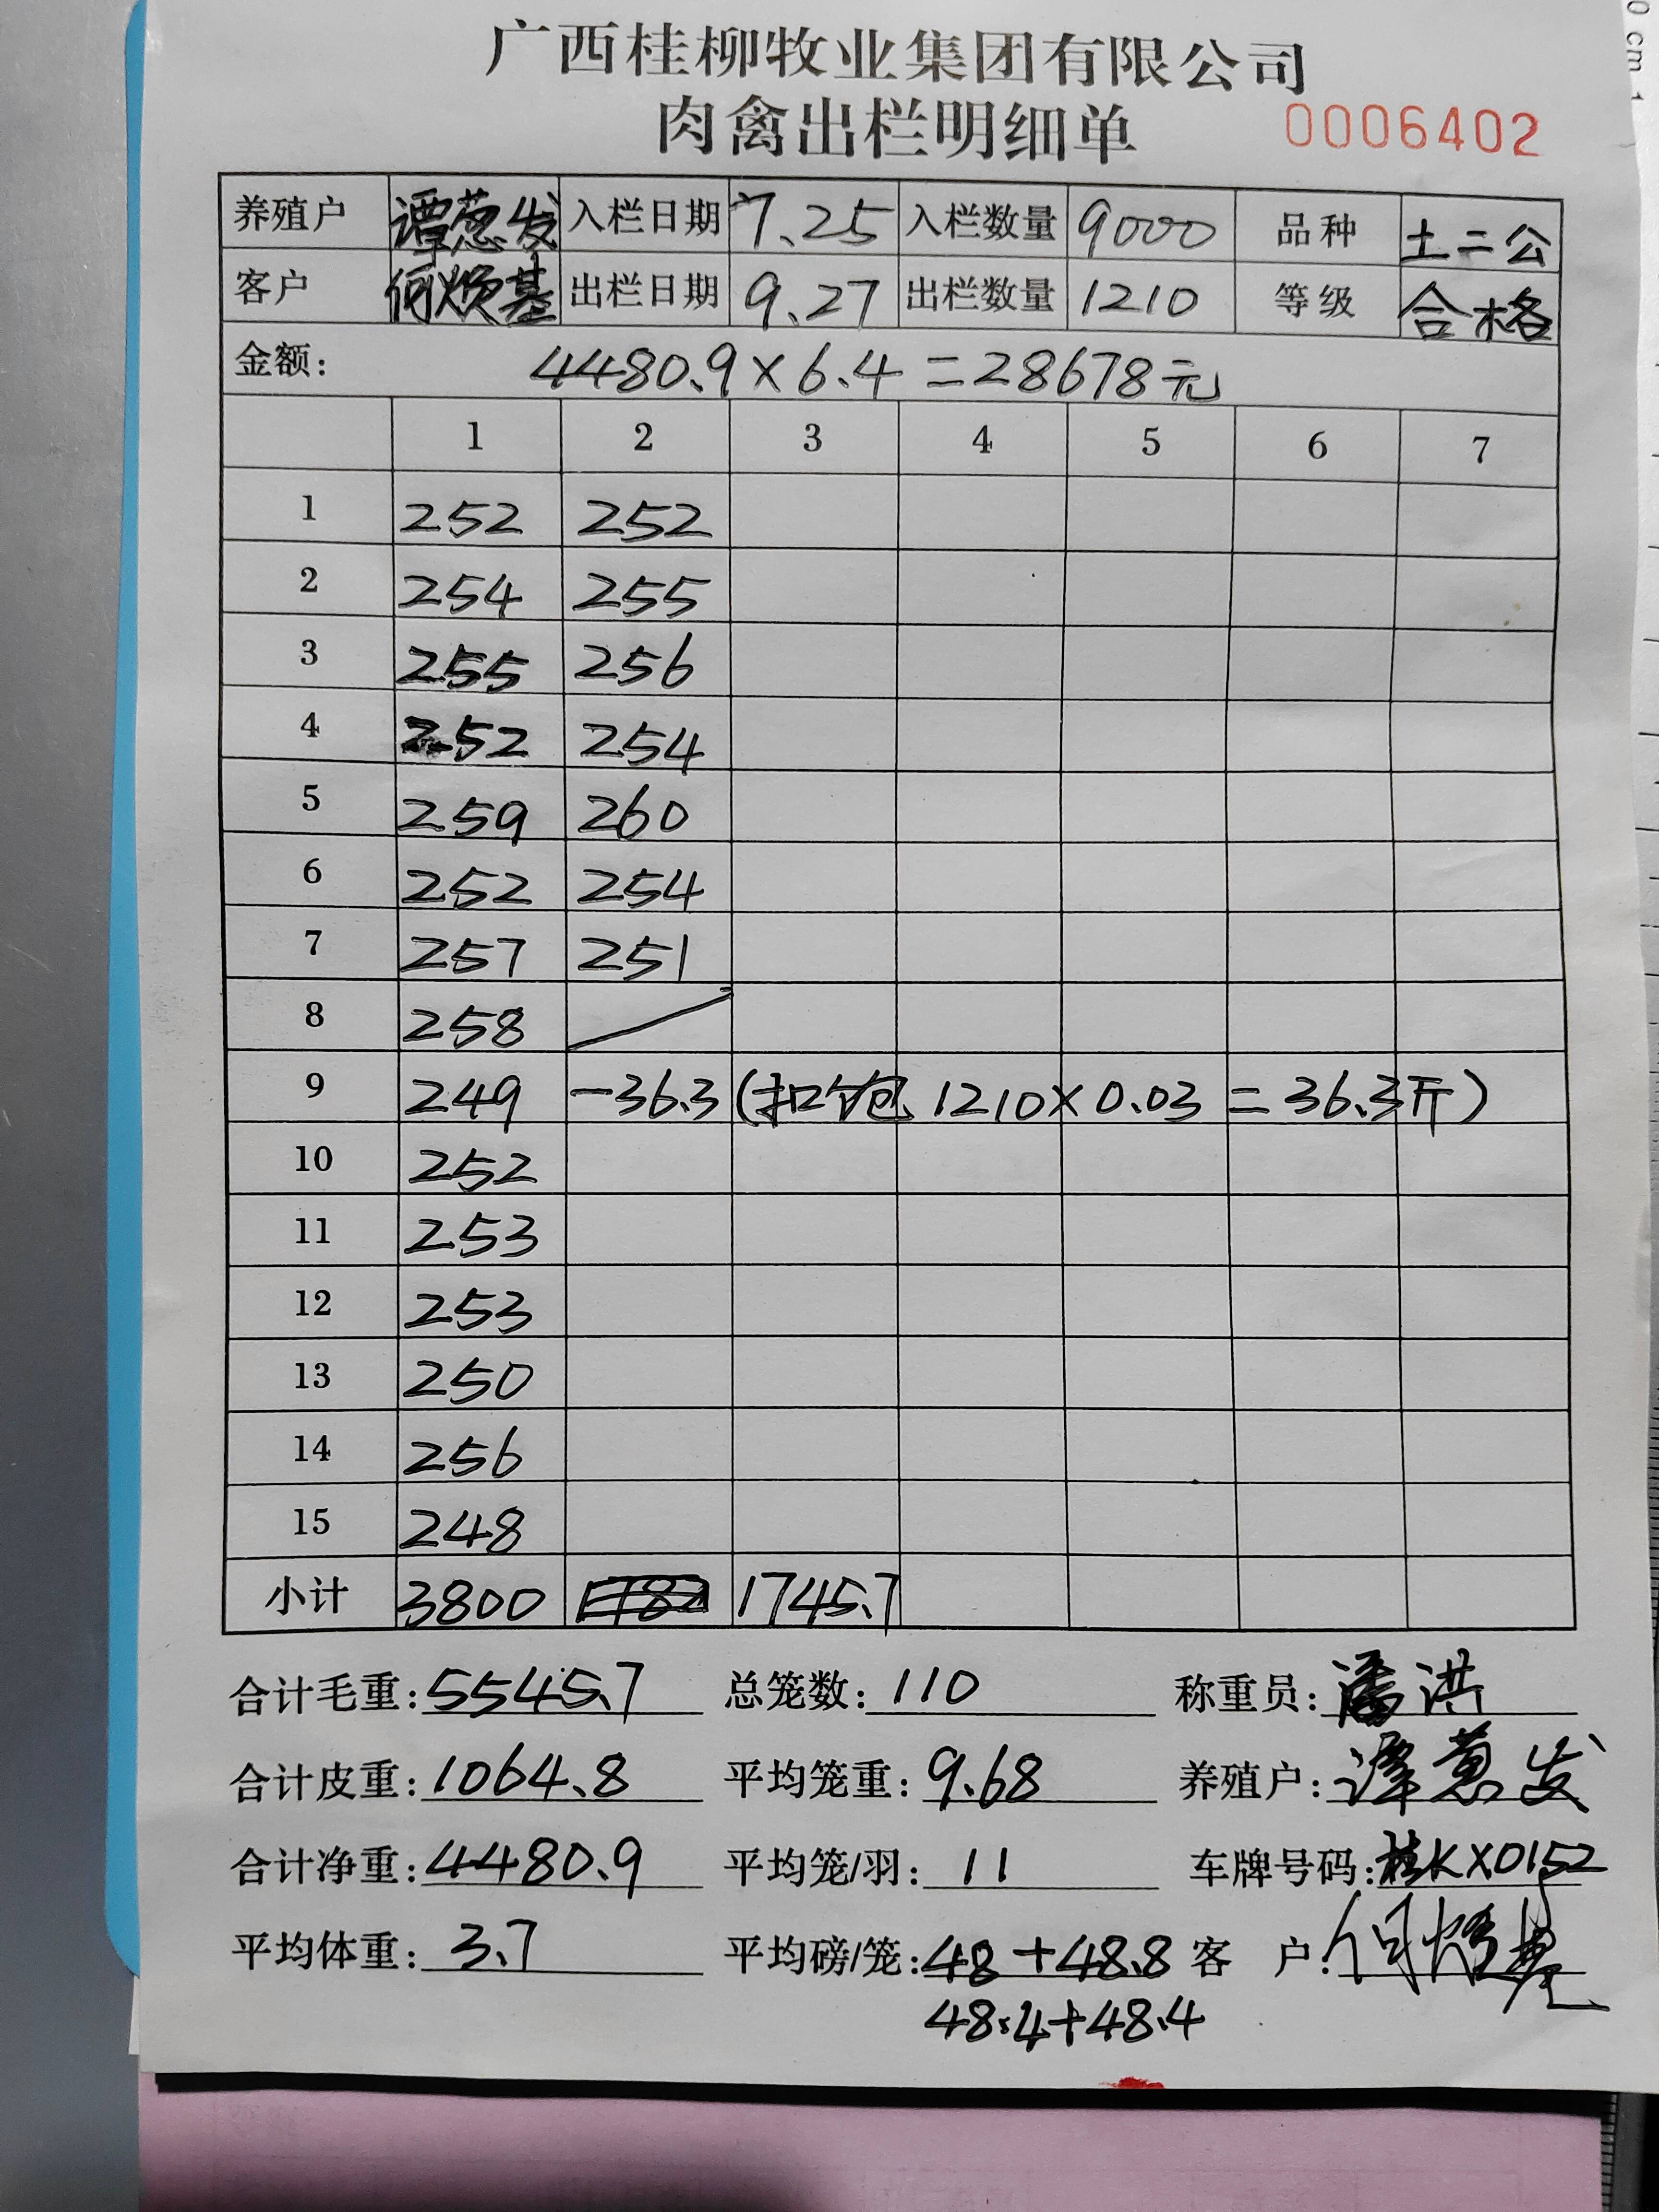 广西桂柳牧业集团有限公司
肉禽出栏明细单 0006402
养殖户 谭葱发 入栏日期 7.25 入栏数量 9000 品种 土二公
客户 何焕基 出栏日期 9.27 出栏数量 1210 等级 合格
金额: 4480.9×6.4=28678元
1 2 3 4 5 6 7
1 252 252
2 254 255
3 255 256
4 252 254
5 259 260
6 252 254
7 257 251
8 258
9 249 -36.3 (扣饲包 1210×0.03=36.3斤)
10 252
11 253
12 253
13 250
14 256
15 248
小计 3800 1745.7
合计毛重: 5545.7 总笼数: 110 称重员: 潘洪
合计皮重: 1064.8 平均笼重: 9.68 养殖户: 谭葱发
合计净重: 4480.9 平均笼/羽: 11 车牌号码: 桂KX0152
平均体重: 3.7 平均磅/笼: 48+48.8 客户: 何焕基
48.4+48.4
0 cm 1